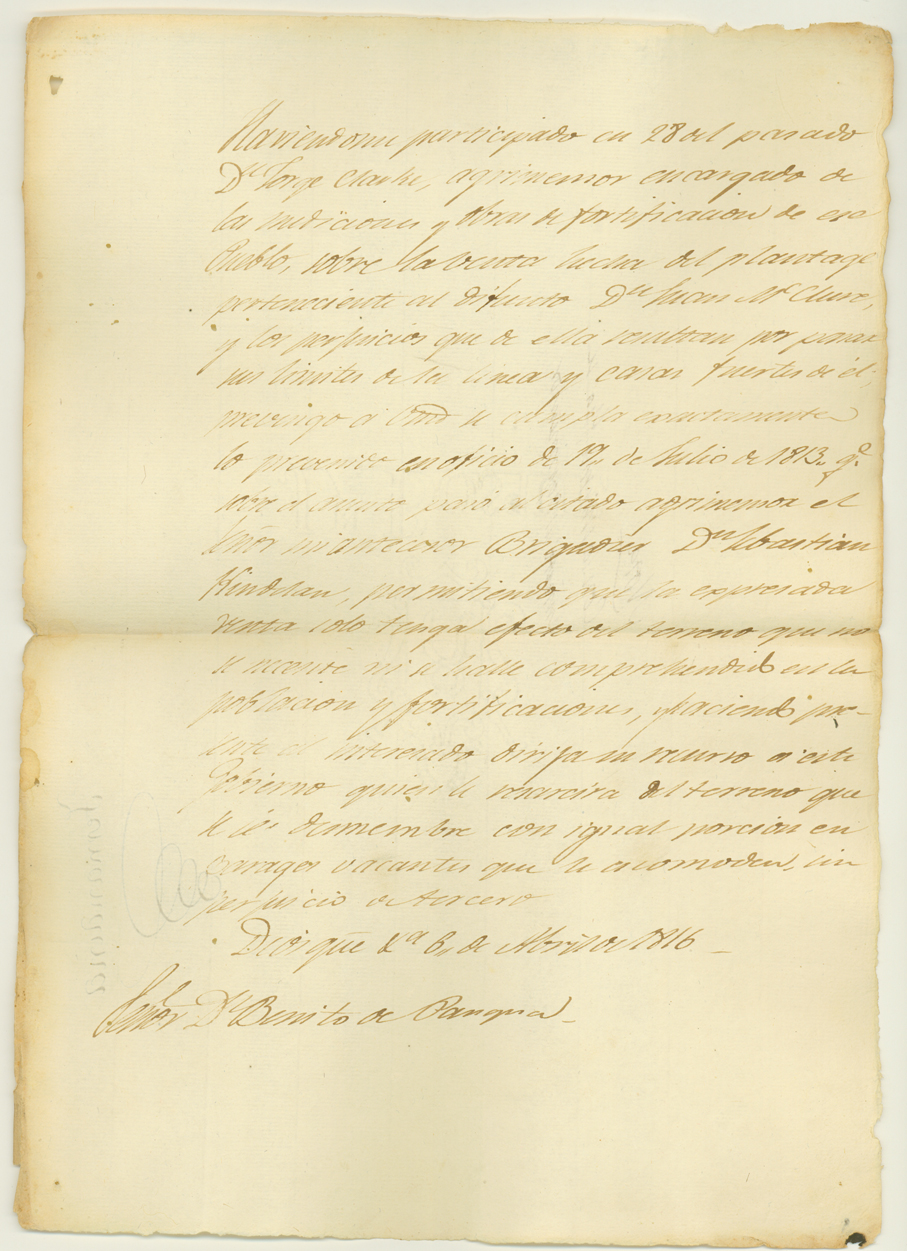 Haviendome participado en 28 del pasado
Dn Jorge Clarke, agrimensor encargado de
las mediciones y obras de fortificacion de ese
Pueblo, sobre la venta hecha del plantage
perteneciente al difunto Dn Juan Mc Clure,
y los perjuicios que de ella resultan por pasar
sus limites de la linea y casas fuertes de él;
prevengo á Vmd se cumpla exactamente
lo prevenido en oficio de 17,, de Julio de 1813,, qe
sobre el asunto pasó al citado agrimensor el
Señor mi antecesor Brigadier Dn Sebastian
Kindelan, permitiendo que la expresada
venta solo tenga efecto del terreno que no
se necesite ni se halle comprehendido en la
poblacion y fortificaciones, y haciendo pre-
sente el interesado dirija su recurso á este
Gobierno quien le resarcira del terreno que
se le desmembre con igual porcion en
parages vacantes que le acomoden, sin
perjuicio de tercero
Dios gūe 6,, de Abril de 1816
Señor Dn Benito de Pangua